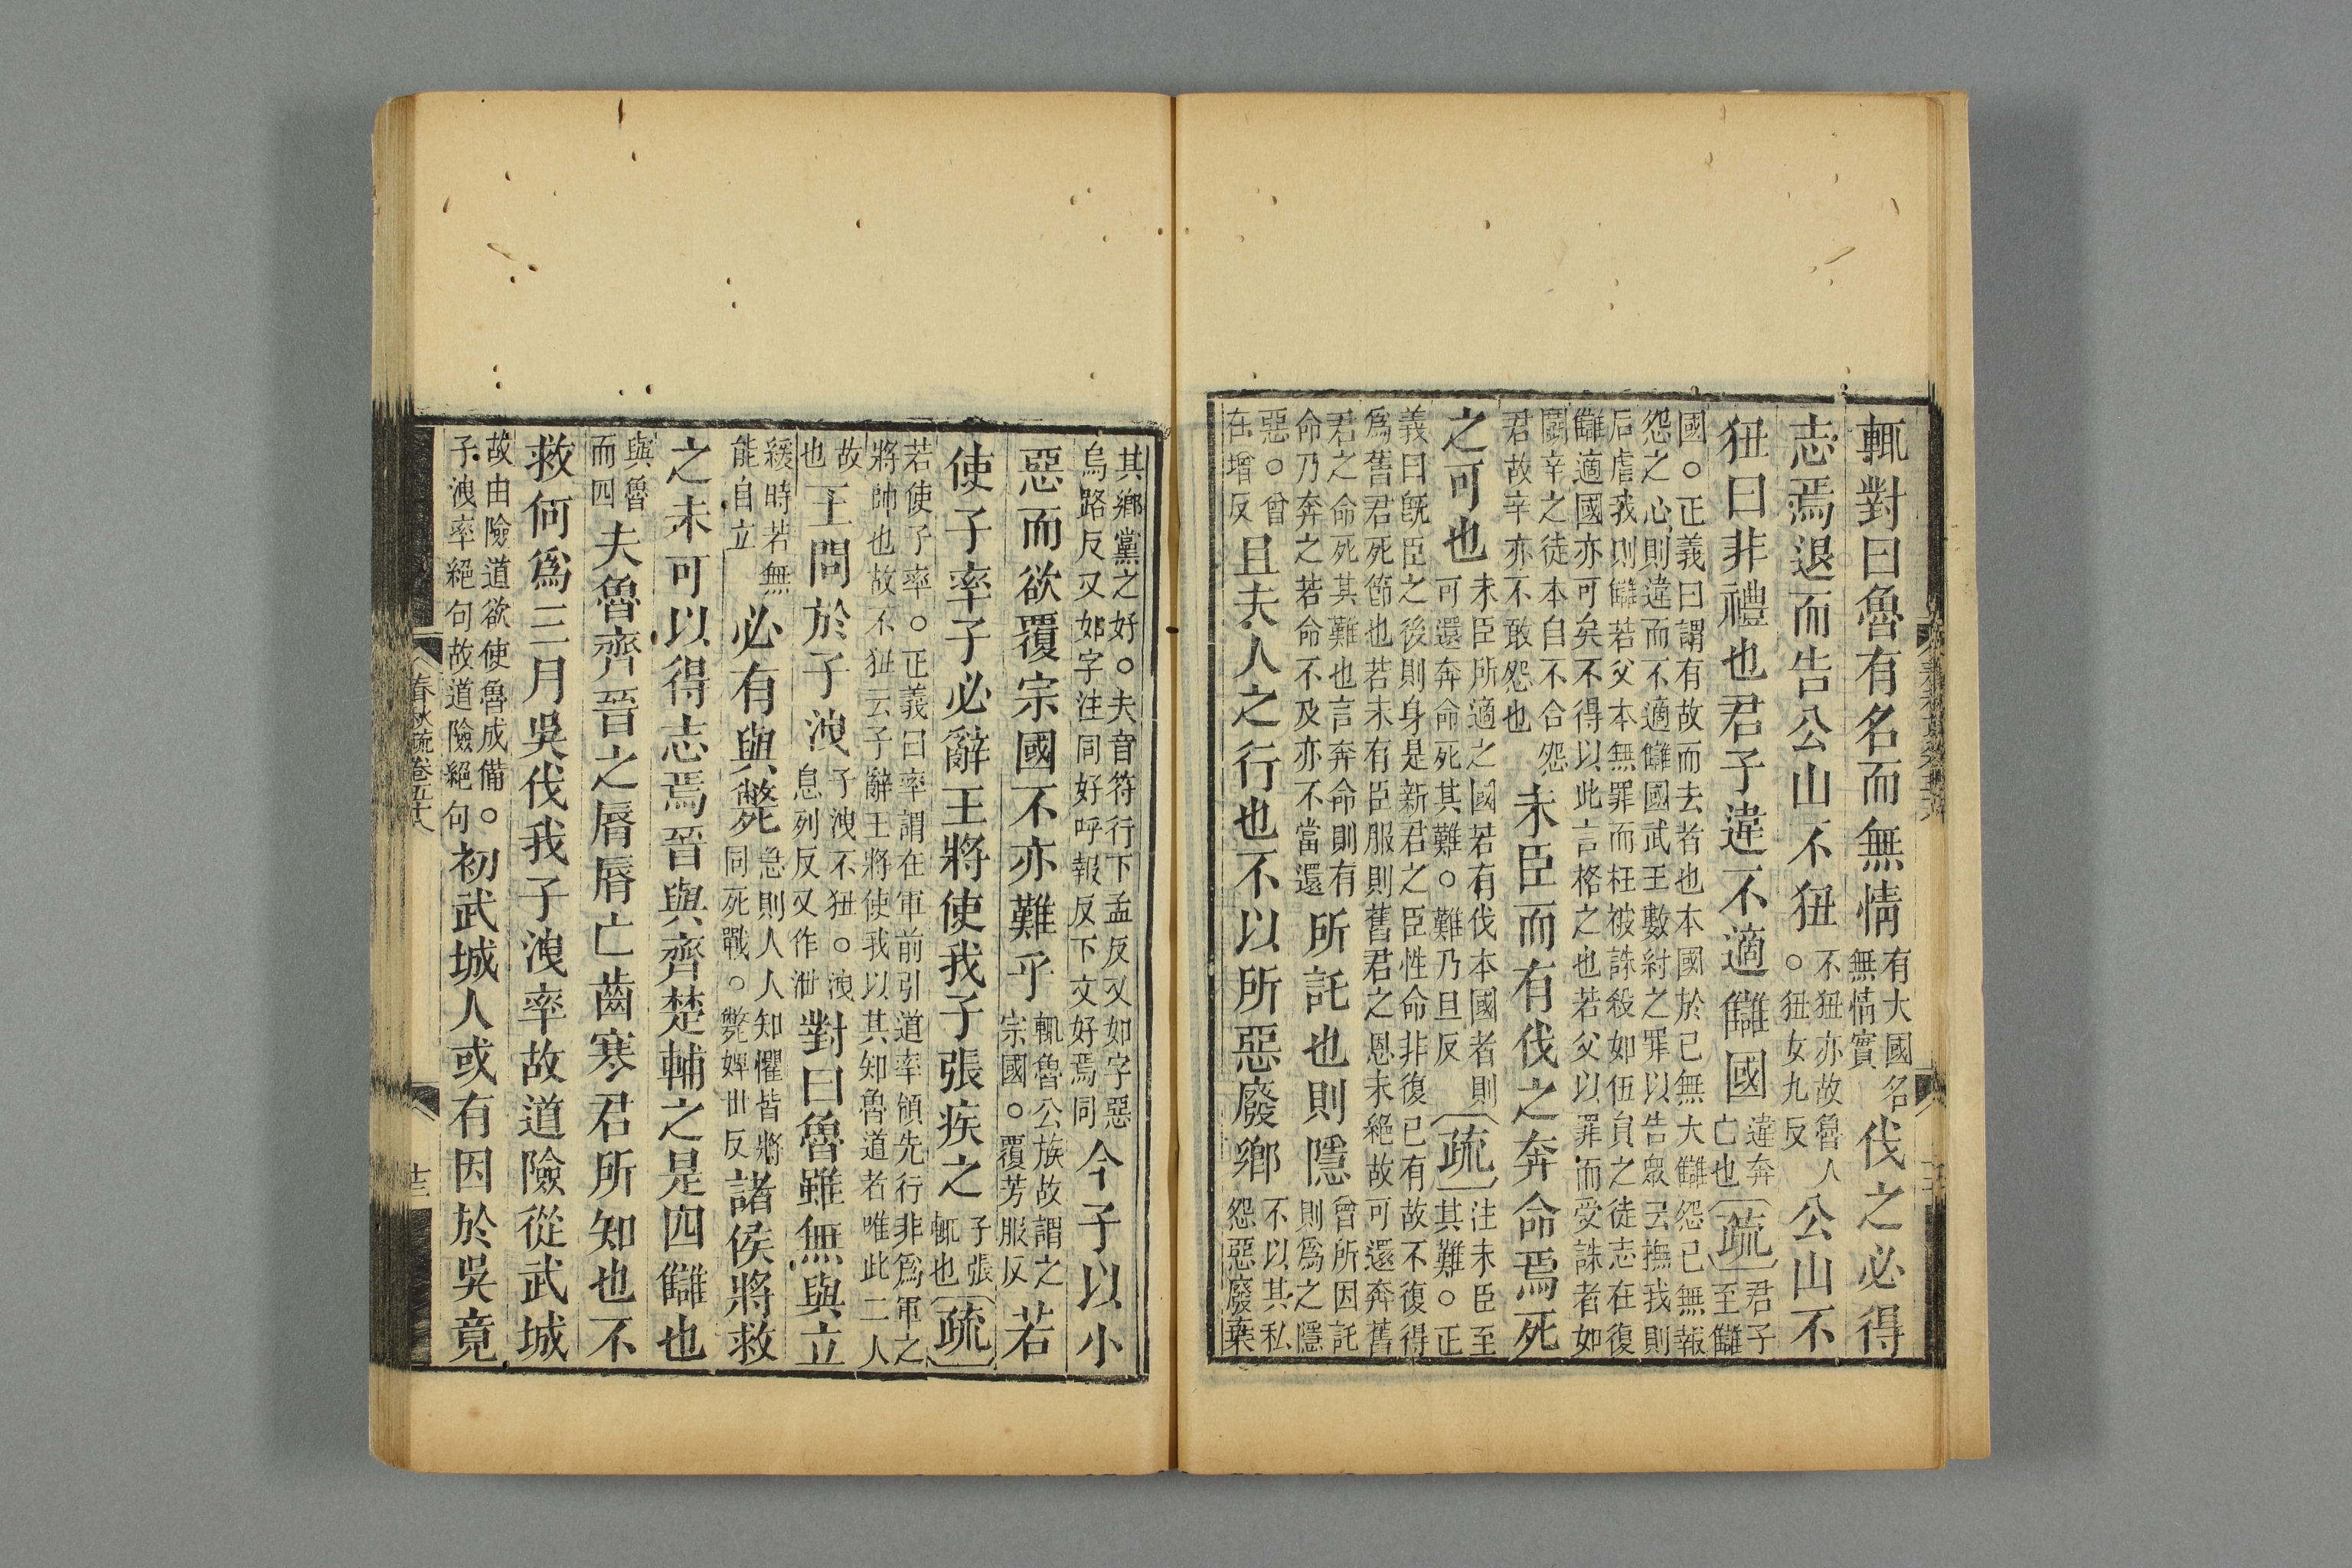 輒對曰魯有名而無情有大國名無情實伐之必得
志焉退而告公山不狃不狃亦故魯人○狃女九反公山不
狃曰非禮也君子違不適讎國違奔亡也疏君子至讎
國○正義曰謂有故而去者也本國於已無大讎怨已無報
怨之心則違而不適讎國武王數紂之罪以告眾云撫我則
后虐我則讎若父本無罪而枉被誅殺如伍員之徒志在復
讎適國亦可矣不得以此言格之也若父以罪而受誅者如
鬬辛之徒本自不合怨
君故辛亦不敢怨也未臣而有伐之奔命焉死
之可也未臣所適之國若有伐本國者則可還奔命死其難○難乃旦反疏注未臣至其難○正
義曰旣臣之後則身是新君之臣性命非復已有故不復得
爲舊君死節也若未有臣服則舊君之恩未絕故可還奔舊
君之命死其難也言奔命則有
命乃奔之若命不及亦不當還所託也則隱曾所因託則爲之隱
惡○曾
在增反且夫人之行也不以所惡廢鄉不以其私怨惡廢棄
其鄉黨之好○夫音符行下孟反又如字惡
烏路反又如字注同好呼報反下文好焉同今子以小
惡而欲覆宗國不亦難乎輒魯公族故謂之宗國○覆芳服反若
使子率子必辭王將使我子張疾之子張輒也疏
若使子率○正義曰率謂在軍前引道率領先行非爲軍之
將帥也故不狃云子辭王將使我以其知魯道者唯此二人
故
也王問於子洩子洩不狃○洩息列反又作泄對曰魯雖無與立
緩時若無
能自立必有與斃急則人人知懼皆將同死戰○斃婢世反諸侯將救
之未可以得志焉晉與齊楚輔之是四讎也
與魯
而四夫魯齊晉之脣脣亡齒寒君所知也不
救何爲三月吳伐我子洩率故道險從武城
故由險道欲使魯成備○
子洩率絕句故道險絕句初武城人或有因於吳竟
春秋疏卷五十八
十三